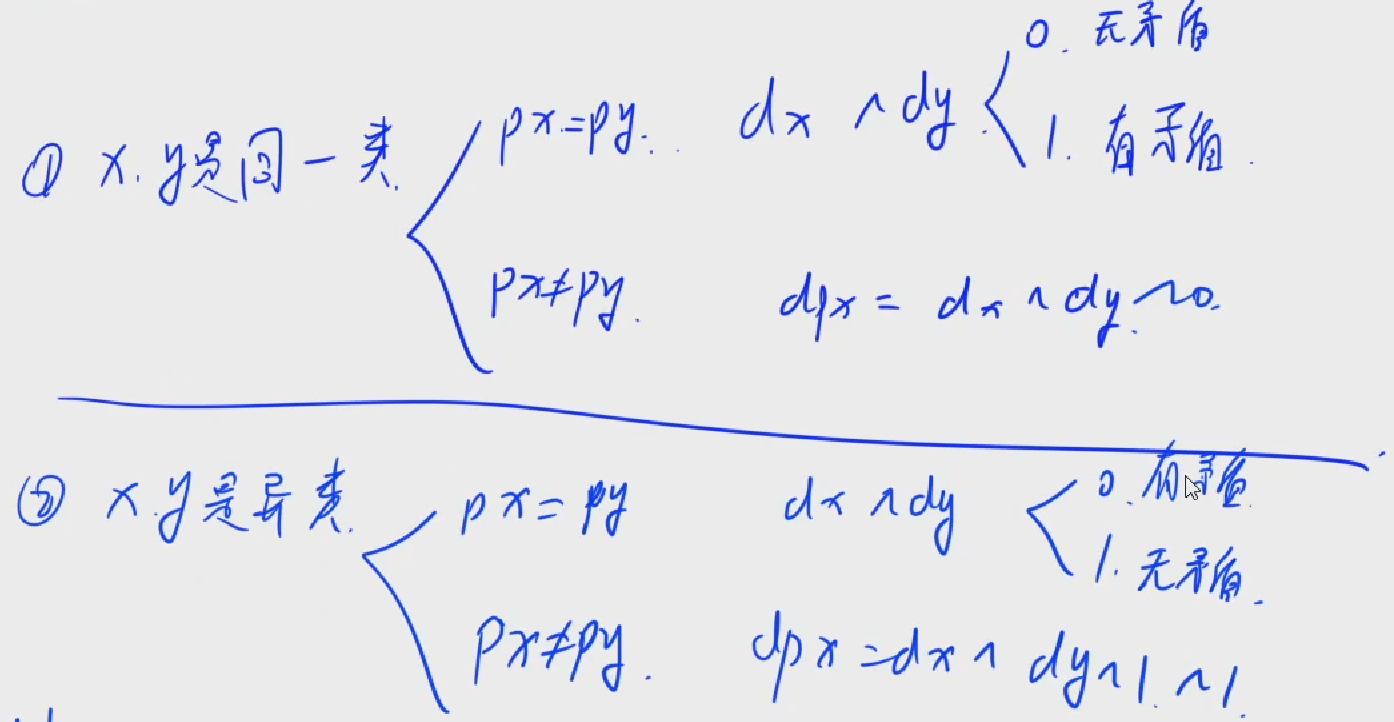 0. 无矛盾
① x. y是同一类. px=py. dx ^ dy. 1. 有矛盾.
px≠py. dpx = dx ^ dy. ^0.
② x.y是异类. px = py dx ^ dy 0. 有矛盾.
1. 无矛盾.
px≠py. dpx = dx ^ dy ^ 1. ^ 1.